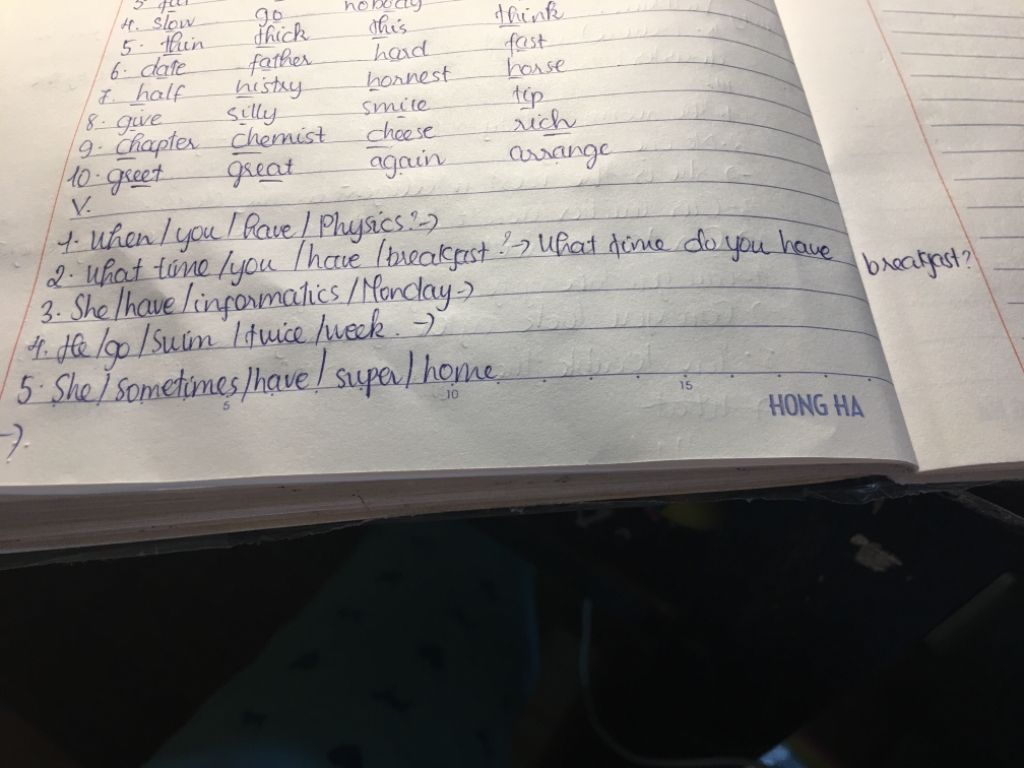 nobody
4. slow go
5. thin thick this think
6. date father hard fast
7. half histry hornest horse
8. give silly smile tip
9. chapter chemist cheese rich
10. greet great again arrange
V.
1. When / you / have / Physics? →
2. What time / you / have / breakfast? → What time do you have breakfast?
3. She / have / informatics / Monday →
4. He / go / swim / twice / week. →
5. She / sometimes / have / super / home
5 10 15
HONG HA
→.